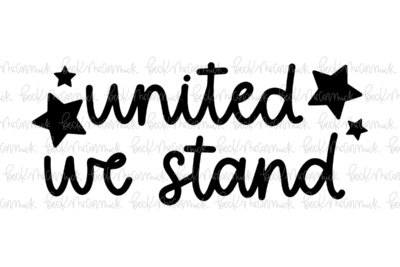 united
we stand